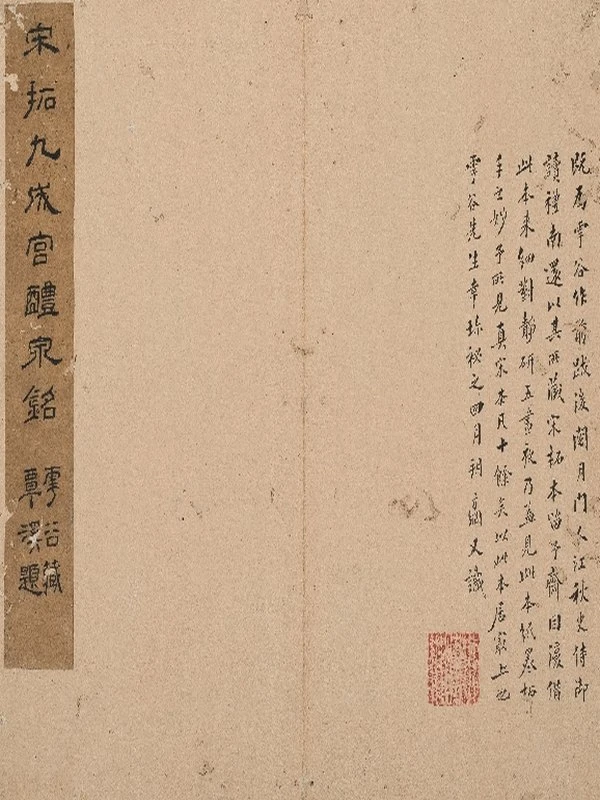 既為雩谷作前跋後閱月門人江秋史侍御
讀禮南還以其所藏宋拓本留予齋因復借
此本来細對静研五晝夜乃益見此本紙墨拓
手之妙予所見真宋本凡十餘矣以此本居最上也
雩谷先生幸珍秘之四月朔方綱又識
宋拓九成宮醴泉銘
雩谷藏
覃溪題